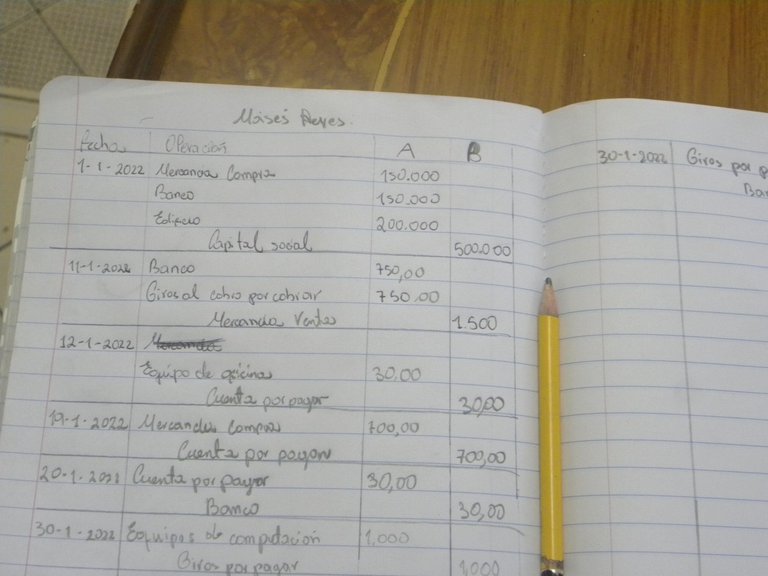 Moises Reyes.
Fecha Operación A B
1-1-2022 Mercancia Compra 150.000
Banco 150.000
Edificio 200.000
Capital social 500.000
11-1-2022 Banco 750,00
Giros al cobro por cobrar 750.00
Mercancia Ventas 1.500
12-1-2022
Equipo de oficina 30,00
Cuenta por pagar 30,00
19-1-2022 Mercancia Compra 700,00
Cuenta por pagar 700,00
20-1-2022 Cuenta por pagar 30,00
Banco 30,00
30-1-2022 Equipos de computacion 1,000
Giros por pagar 1,000
30-1-2022 Giros por p
Ban